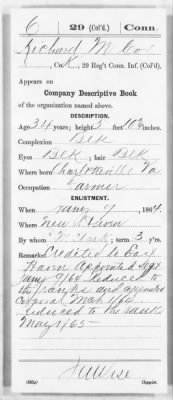 6 | 29 (Col'd.) | Conn.
Richard M Cox
, Co. K, 29 Reg't Conn. Inf. (Col'd).
Appears on
Company Descriptive Book
of the organization named above.
DESCRIPTION.
Age 34 years; height 5 feet 10½ inches.
Complexion Blk
Eyes Blk ; hair Blk
Where born Charlotteville Va
Occupation Farmer
ENLISTMENT.
When Jany 9 , 1864.
Where New Haven
By whom Clark ; term 3 y'rs.
Remarks: Credited to East
Haven Appointed Sergt
Jany 9/64 Reduced to
the ranks and appointed
Corporal Mch 1/64
Reduced to the ranks
May 1/65 -
Copyist.